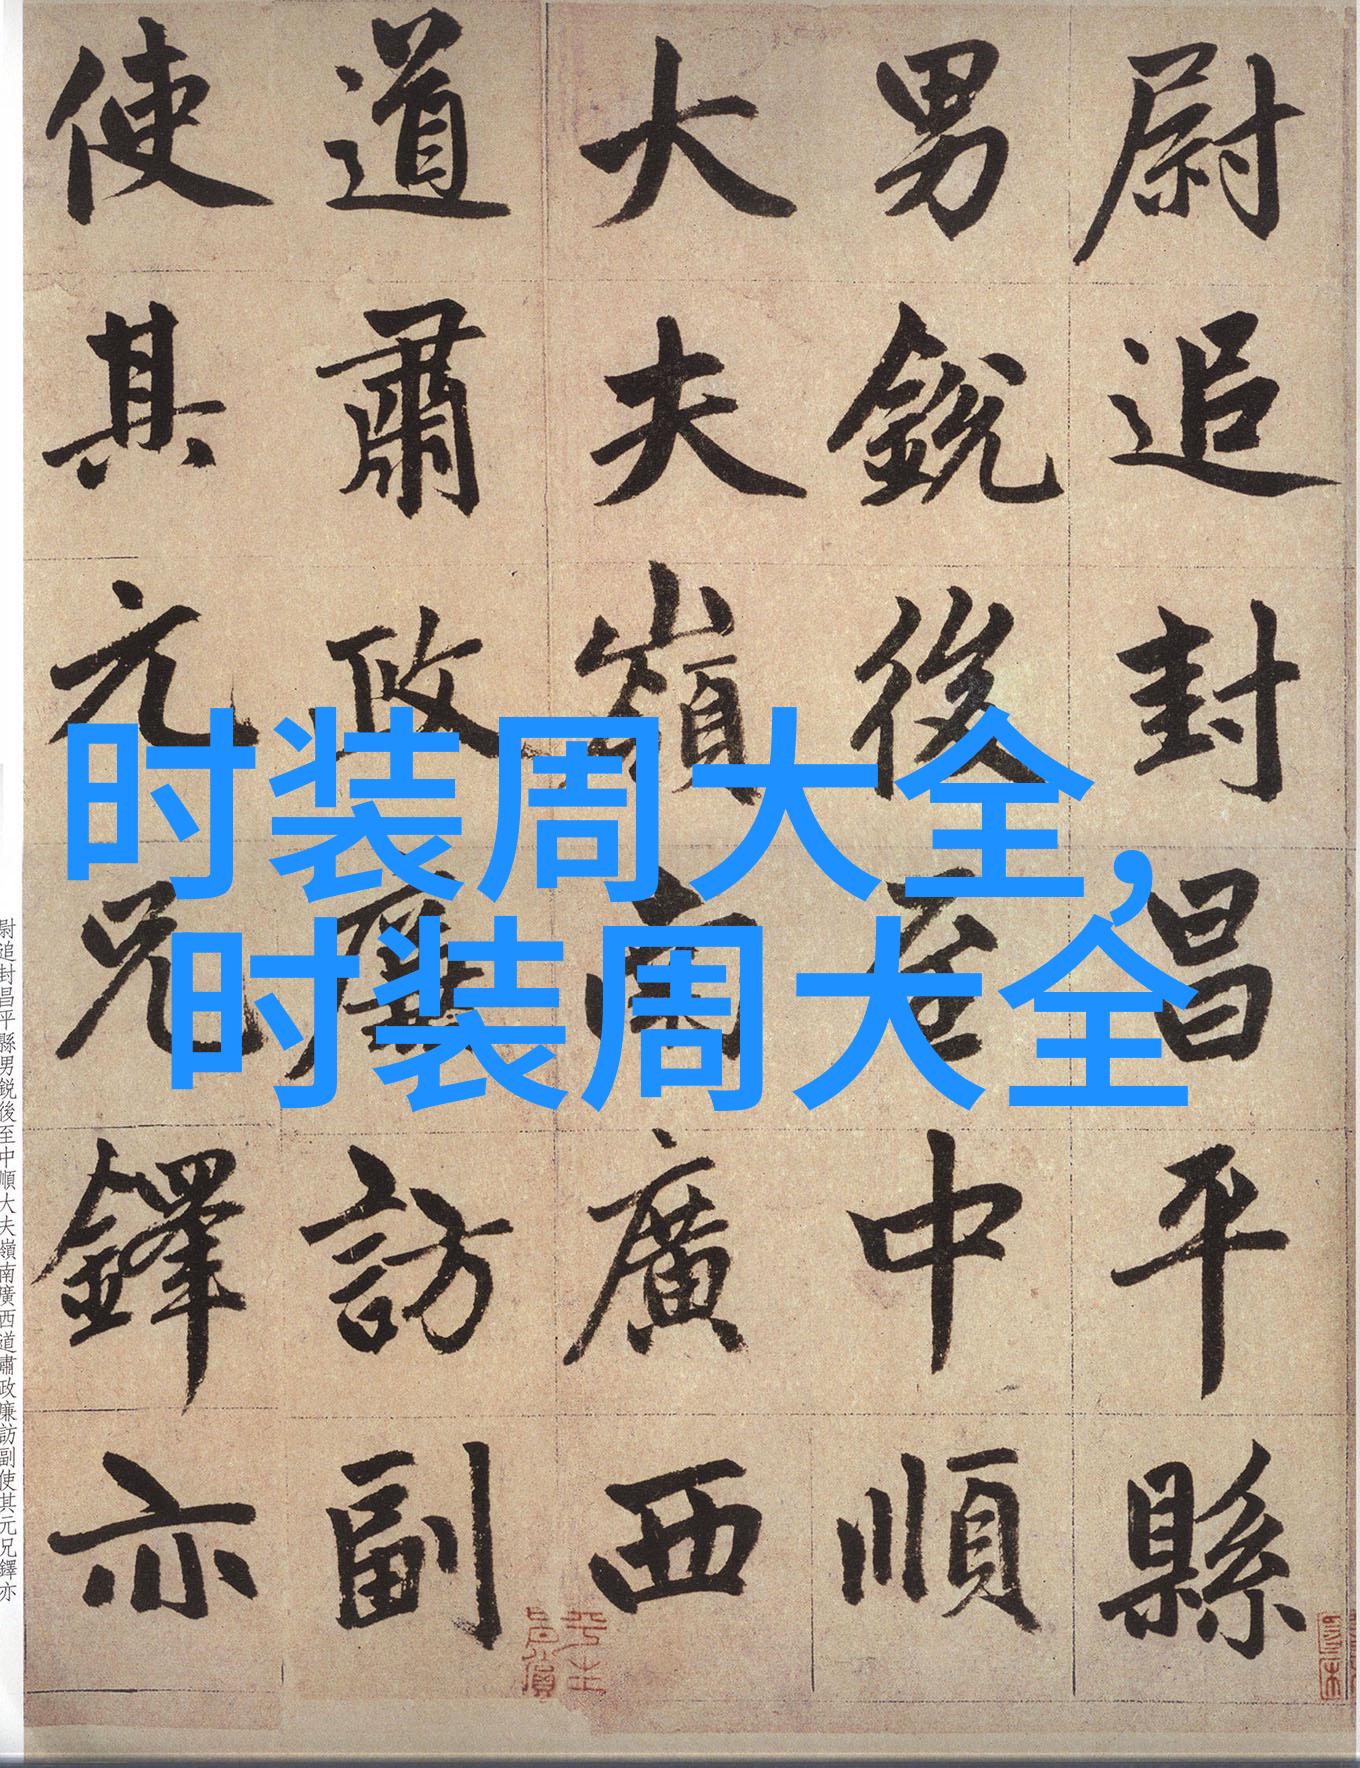 尉追封昌平縣
男銳後至中順
大夫嶺南廣西
道肅政廉訪副
使其元兄鐸亦
时装周大全,
时装周大全
尉追封昌平縣男銳後至中順大夫嶺南廣西道肅政廉訪副使其元兄鐸亦